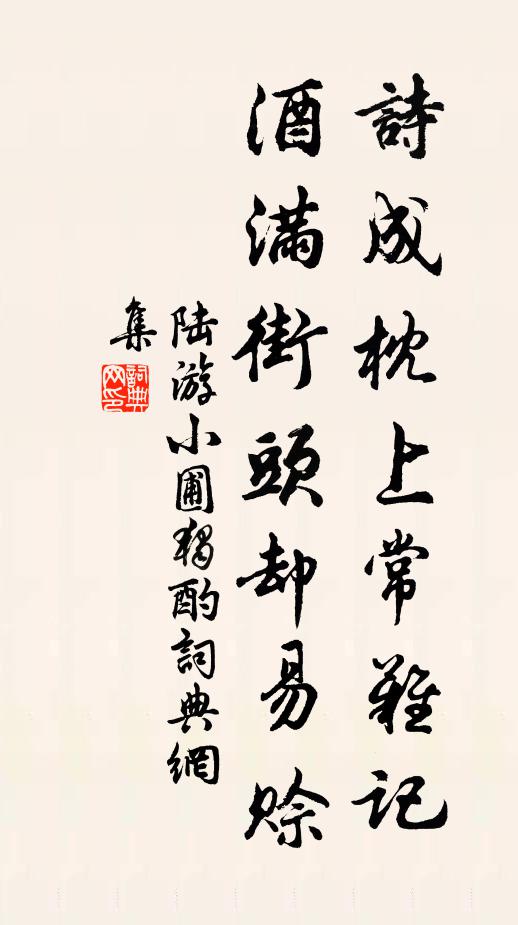 詩成枕上常難記
酒滿街頭却易賒
陸游小圃獨酌詞典網
集
詞典网印